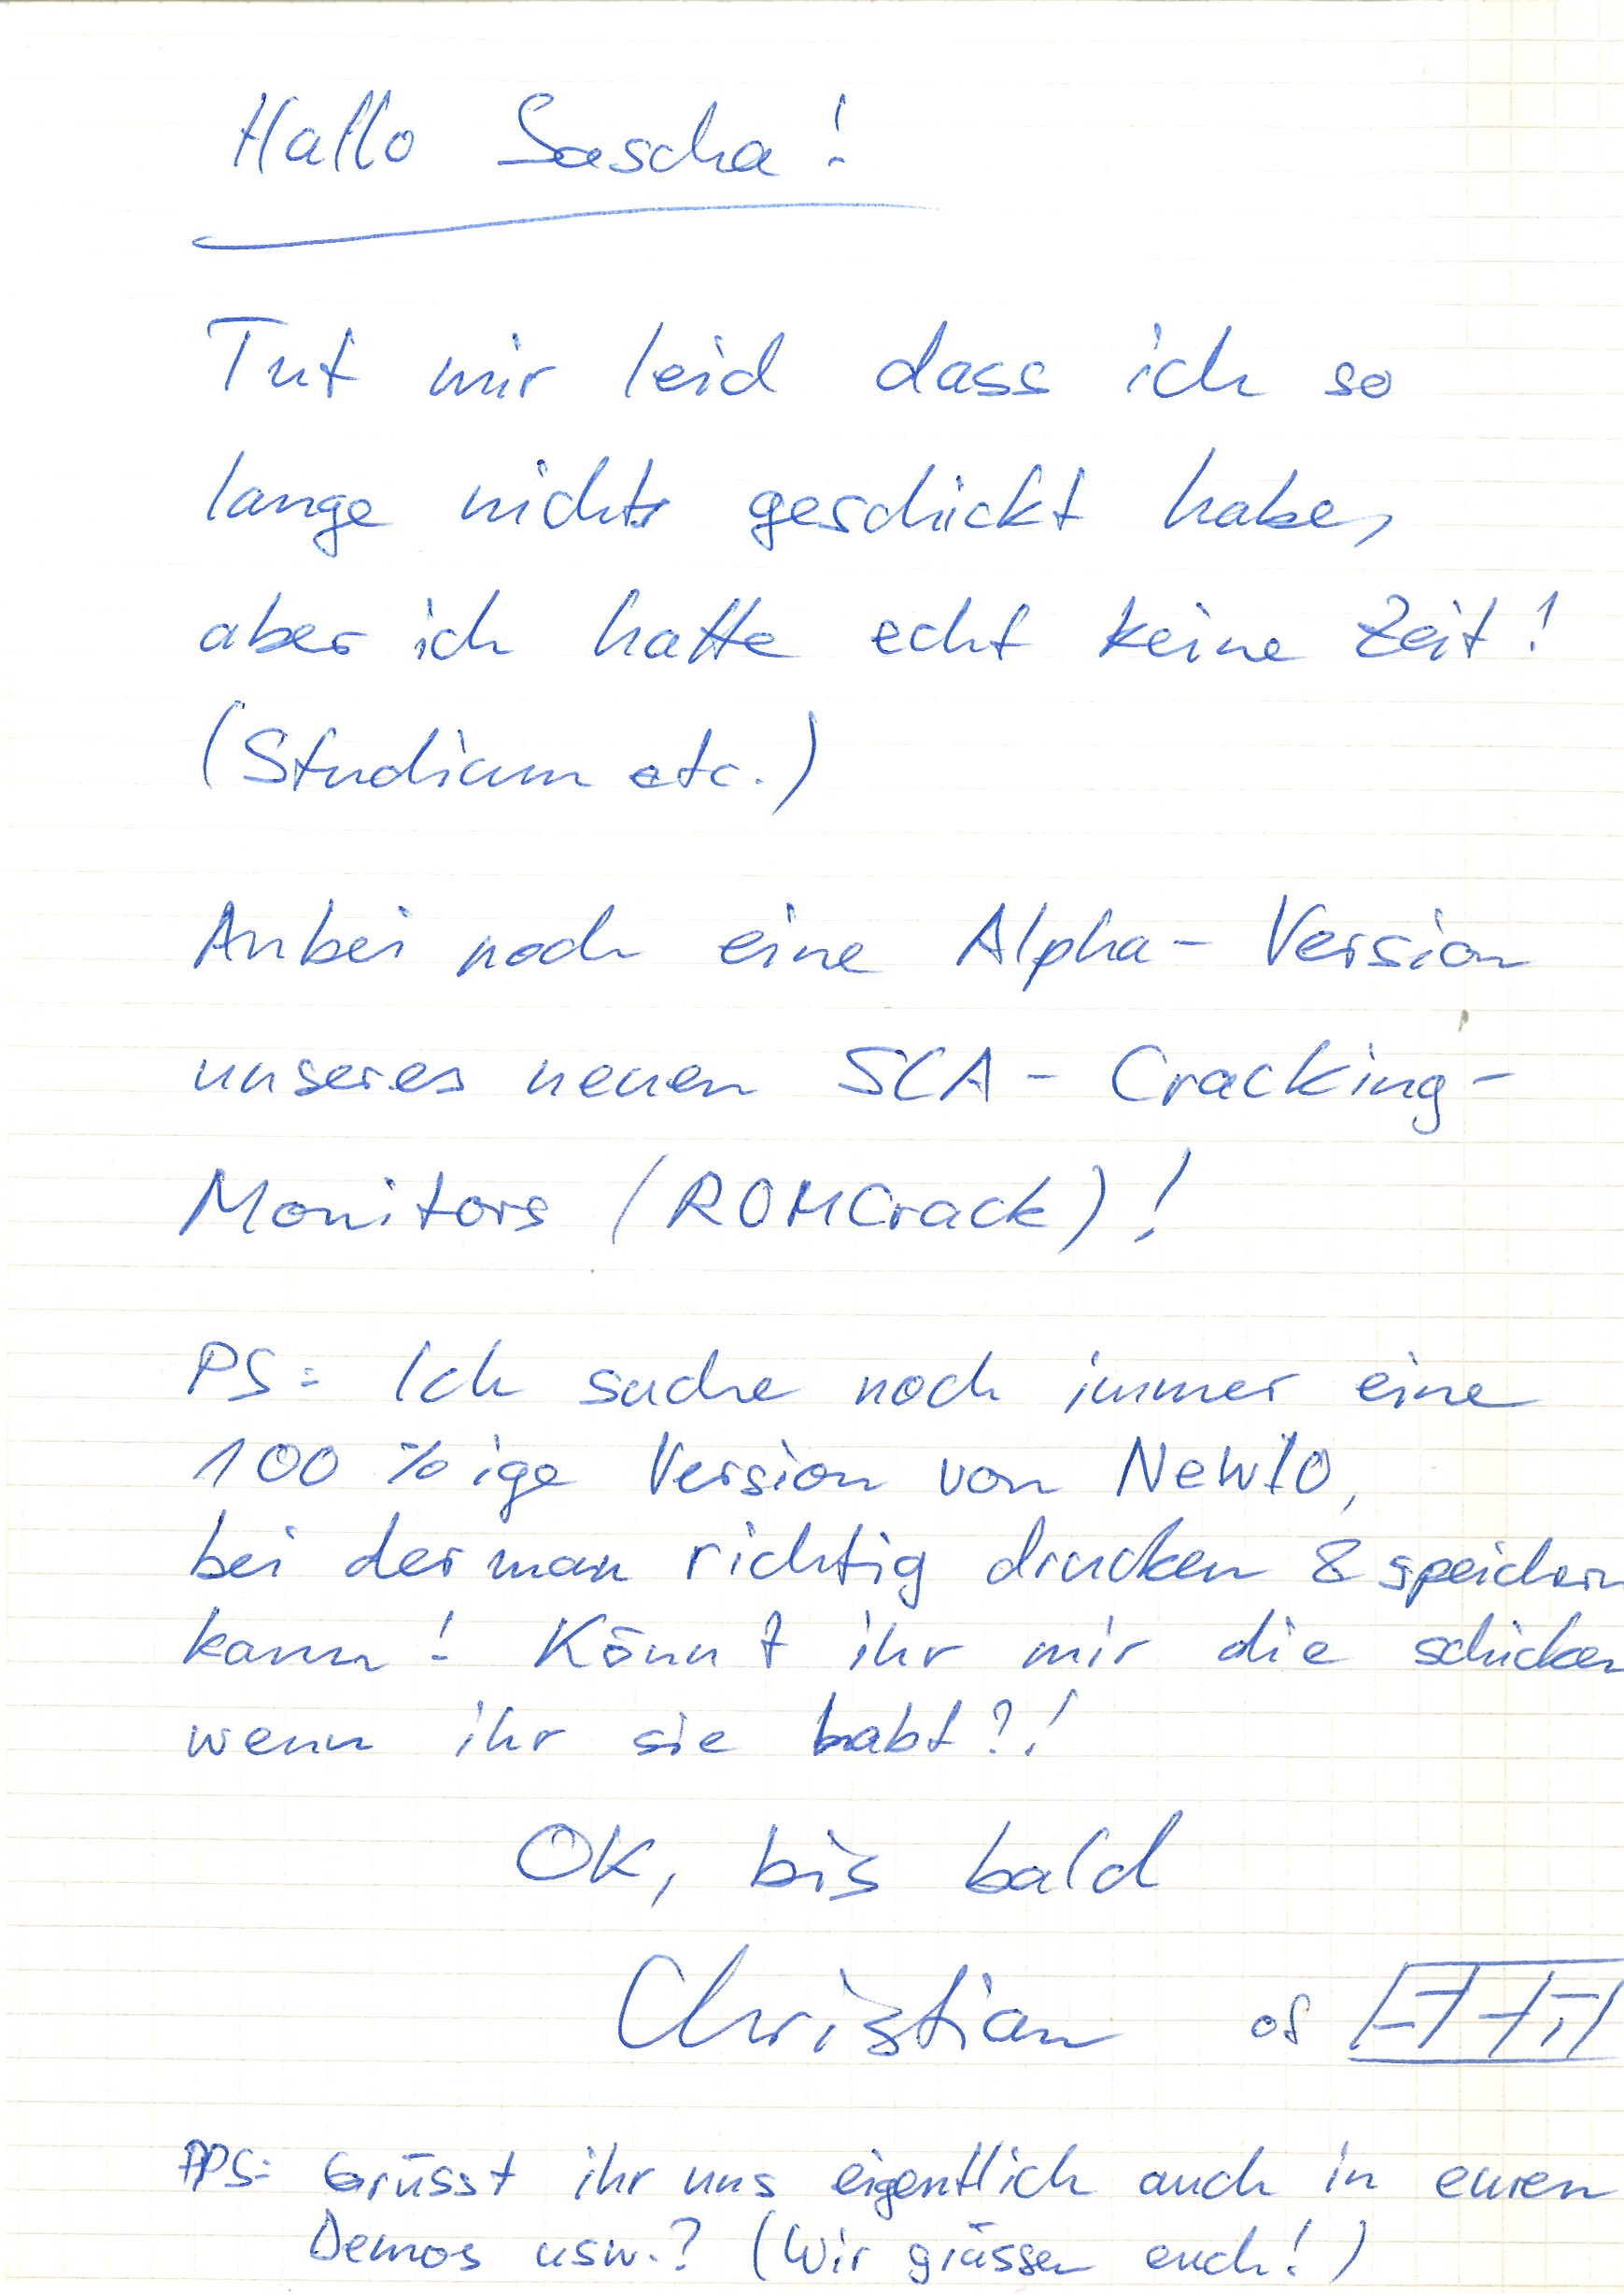 Hallo Sascha!
Tut mir leid dass ich so
lange nichts geschickt habe,
aber ich hatte echt keine Zeit!
(Studium etc.)
Anbei noch eine Alpha-Version
unseres neuen SCA-Cracking-
Monitors (ROMCrack)!
PS: Ich suche noch immer eine
100%ige Version von
bei der man richtig drucken & speichern
kann! Könnt ihr mir die schicken
wenn ihr sie habt?!
OK, bis bald
Christian of
PPS: Grüsst ihr uns eigentlich auch in euren
Demos usw.? (Wir grüssen euch!)